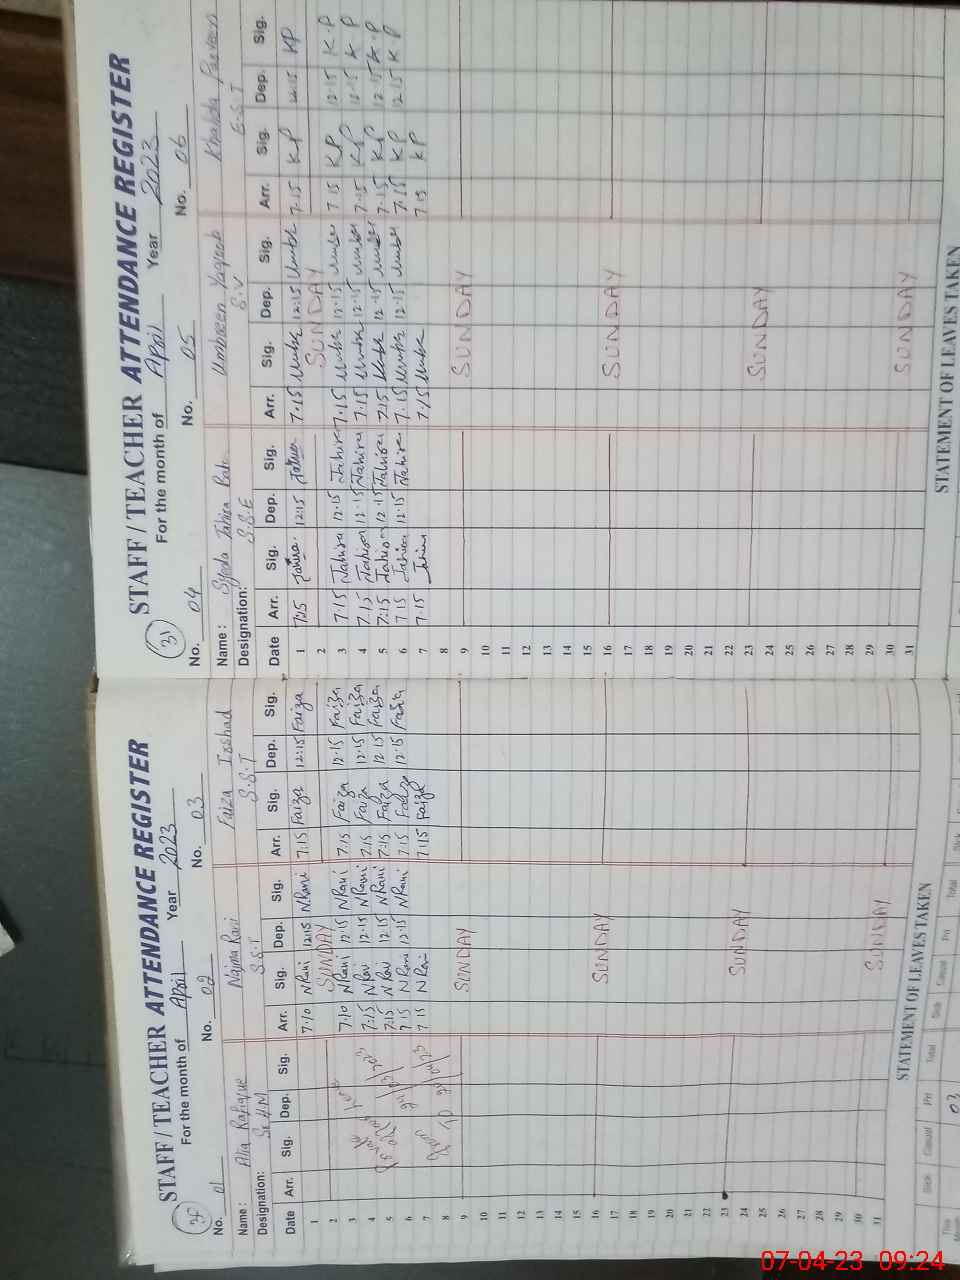 30
STAFF / TEACHER ATTENDANCE REGISTER
For the month of April Year 2023
No. 01 No. 02 No. 03
Name: Atia Rafique Najma Rani Faiza Irshad
Designation: S.S.T S.S.T
Date Arr. Sig. Dep. Sig. Arr. Sig. Dep. Sig. Arr. Sig. Dep. Sig.
1 7:10 NRani 12:15 NRani 7:15 Faiza 12:15 Faiza
2 SUNDAY
3 7:10 NRani 12:15 NRani 7:15 Faiza 12:15 Faiza
4 7:15 NRani 12:15 NRani 7:15 Faiza 12:15 Faiza
5 7:15 NRani 12:15 NRani 7:15 Faiza 12:15 Faiza
6 7:15 NRani 12:15 NRani 7:15 Faiza 12:15 Faiza
7 7:15 NRani 7:15 Faiza
8
9 SUNDAY
10
11
12
13
14
15
16 SUNDAY
17
18
19
20
21
22
23 SUNDAY
24
25
26
27
28
29
30 SUNDAY
31
STATEMENT OF LEAVES TAKEN
This Sick Casual Pri Total Sick Casual Pri Total Sick
Month 03
31
STAFF / TEACHER ATTENDANCE REGISTER
For the month of April Year 2023
No. 04 No. 05 No. 06
Name: Syeda Tahira Umbreen Yaqoob Khalida Parveen
Designation: S.S.E S.V E.S.T
Date Arr. Sig. Dep. Sig. Arr. Sig. Dep. Sig. Arr. Sig. Dep. Sig.
1 7:15 Tahira 12:15 Tahira 7:15 12:15 7:15 KP 12:15 KP
2 SUNDAY
3 7:15 Tahira 12:15 Tahira 7:15 12:15 7:15 KP 12:15 K.P
4 7:15 Tahira 12:15 Tahira 7:15 12:15 7:15 KP 12:15 K P
5 7:15 Tahira 12:15 Tahira 7:15 12:15 7:15 KP 12:15 K.P
6 7:15 Tahira 12:15 Tahira 7:15 12:15 7:15 KP 12:15 K P
7 7:15 Tahira 7:15 7:15 KP
8
9 SUNDAY
10
11
12
13
14
15
16 SUNDAY
17
18
19
20
21
22
23 SUNDAY
24
25
26
27
28
29
30 SUNDAY
31
STATEMENT OF LEAVES TAKEN
07-04-23 09:24